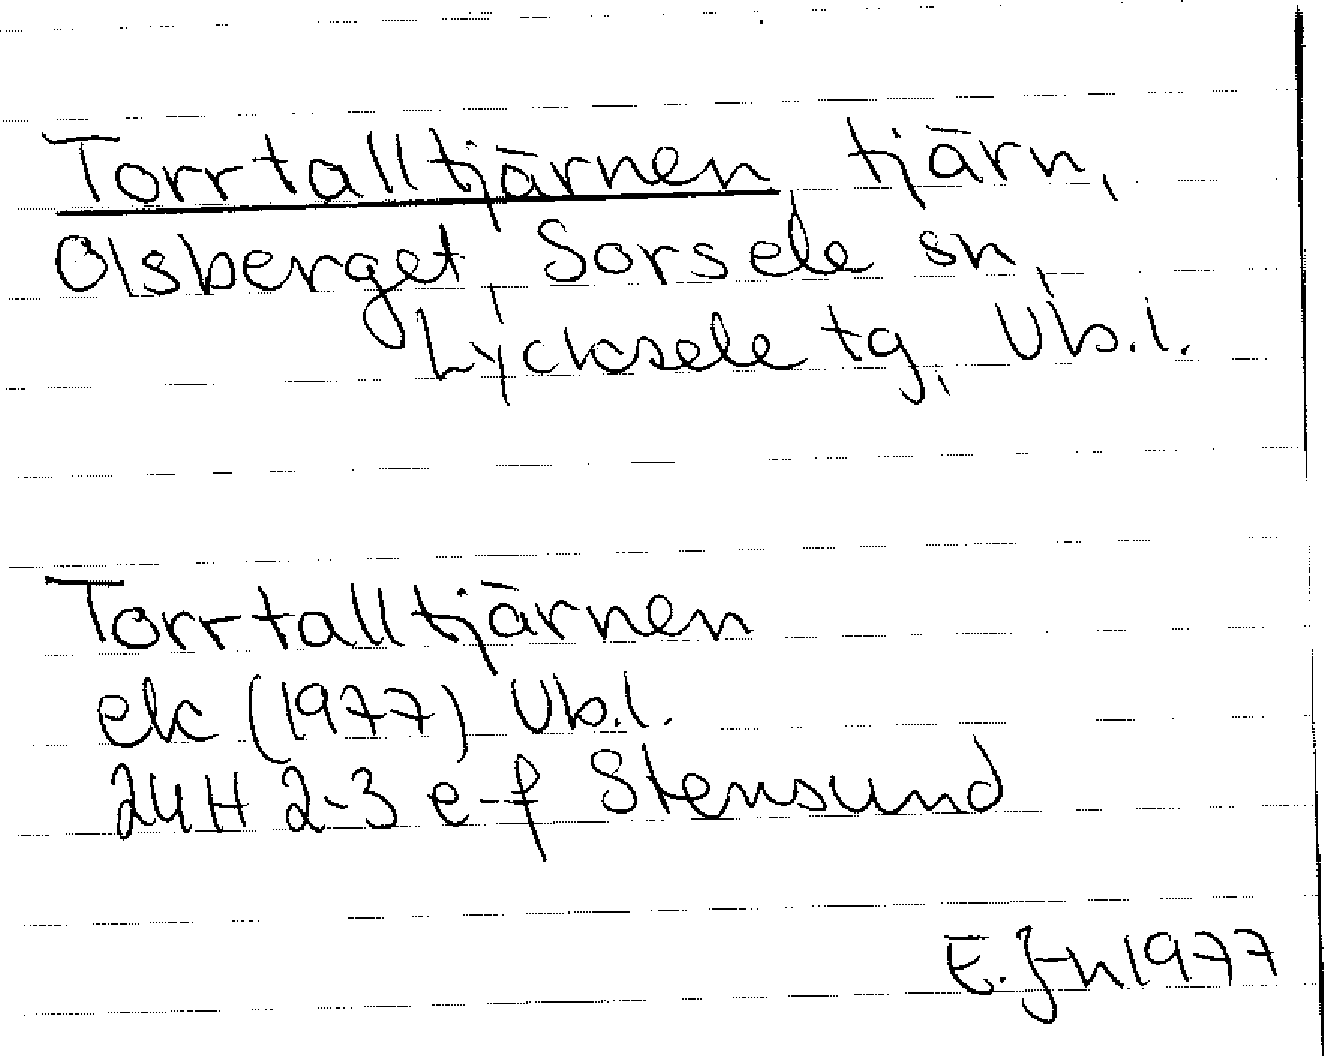 Torrtalltjärnen tjärn,
Olsberget, Sorsele sn,
Lycksele tg, Vb.l.
Torrtalltjärnen
ek (1977) Vb.l.
24H 2-3 e-f Stensund
E. J-n 1977